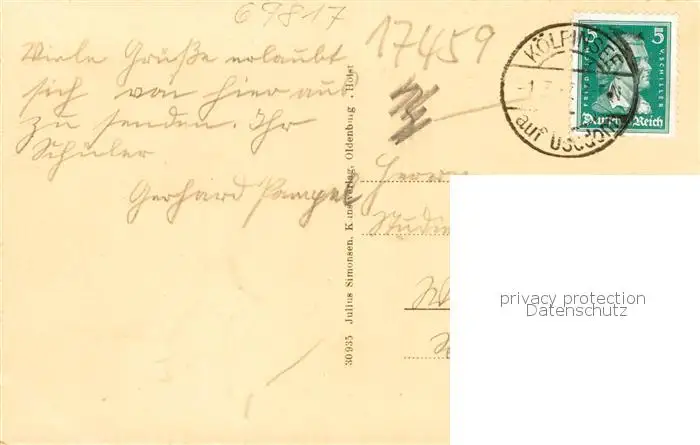 69817
17459
Viele Grüße erlaubt
sich von hier aus
zu senden. Ihr
Schüler
Gerhard Pampel
Herrn
30935 Julius Simonsen, Kunstverlag, Oldenburg i. Holst
KÖLPINSEE
auf Usedom
5 5
FRIEDR. V. SCHILLER
Deutsches Reich
privacy protection
Datenschutz